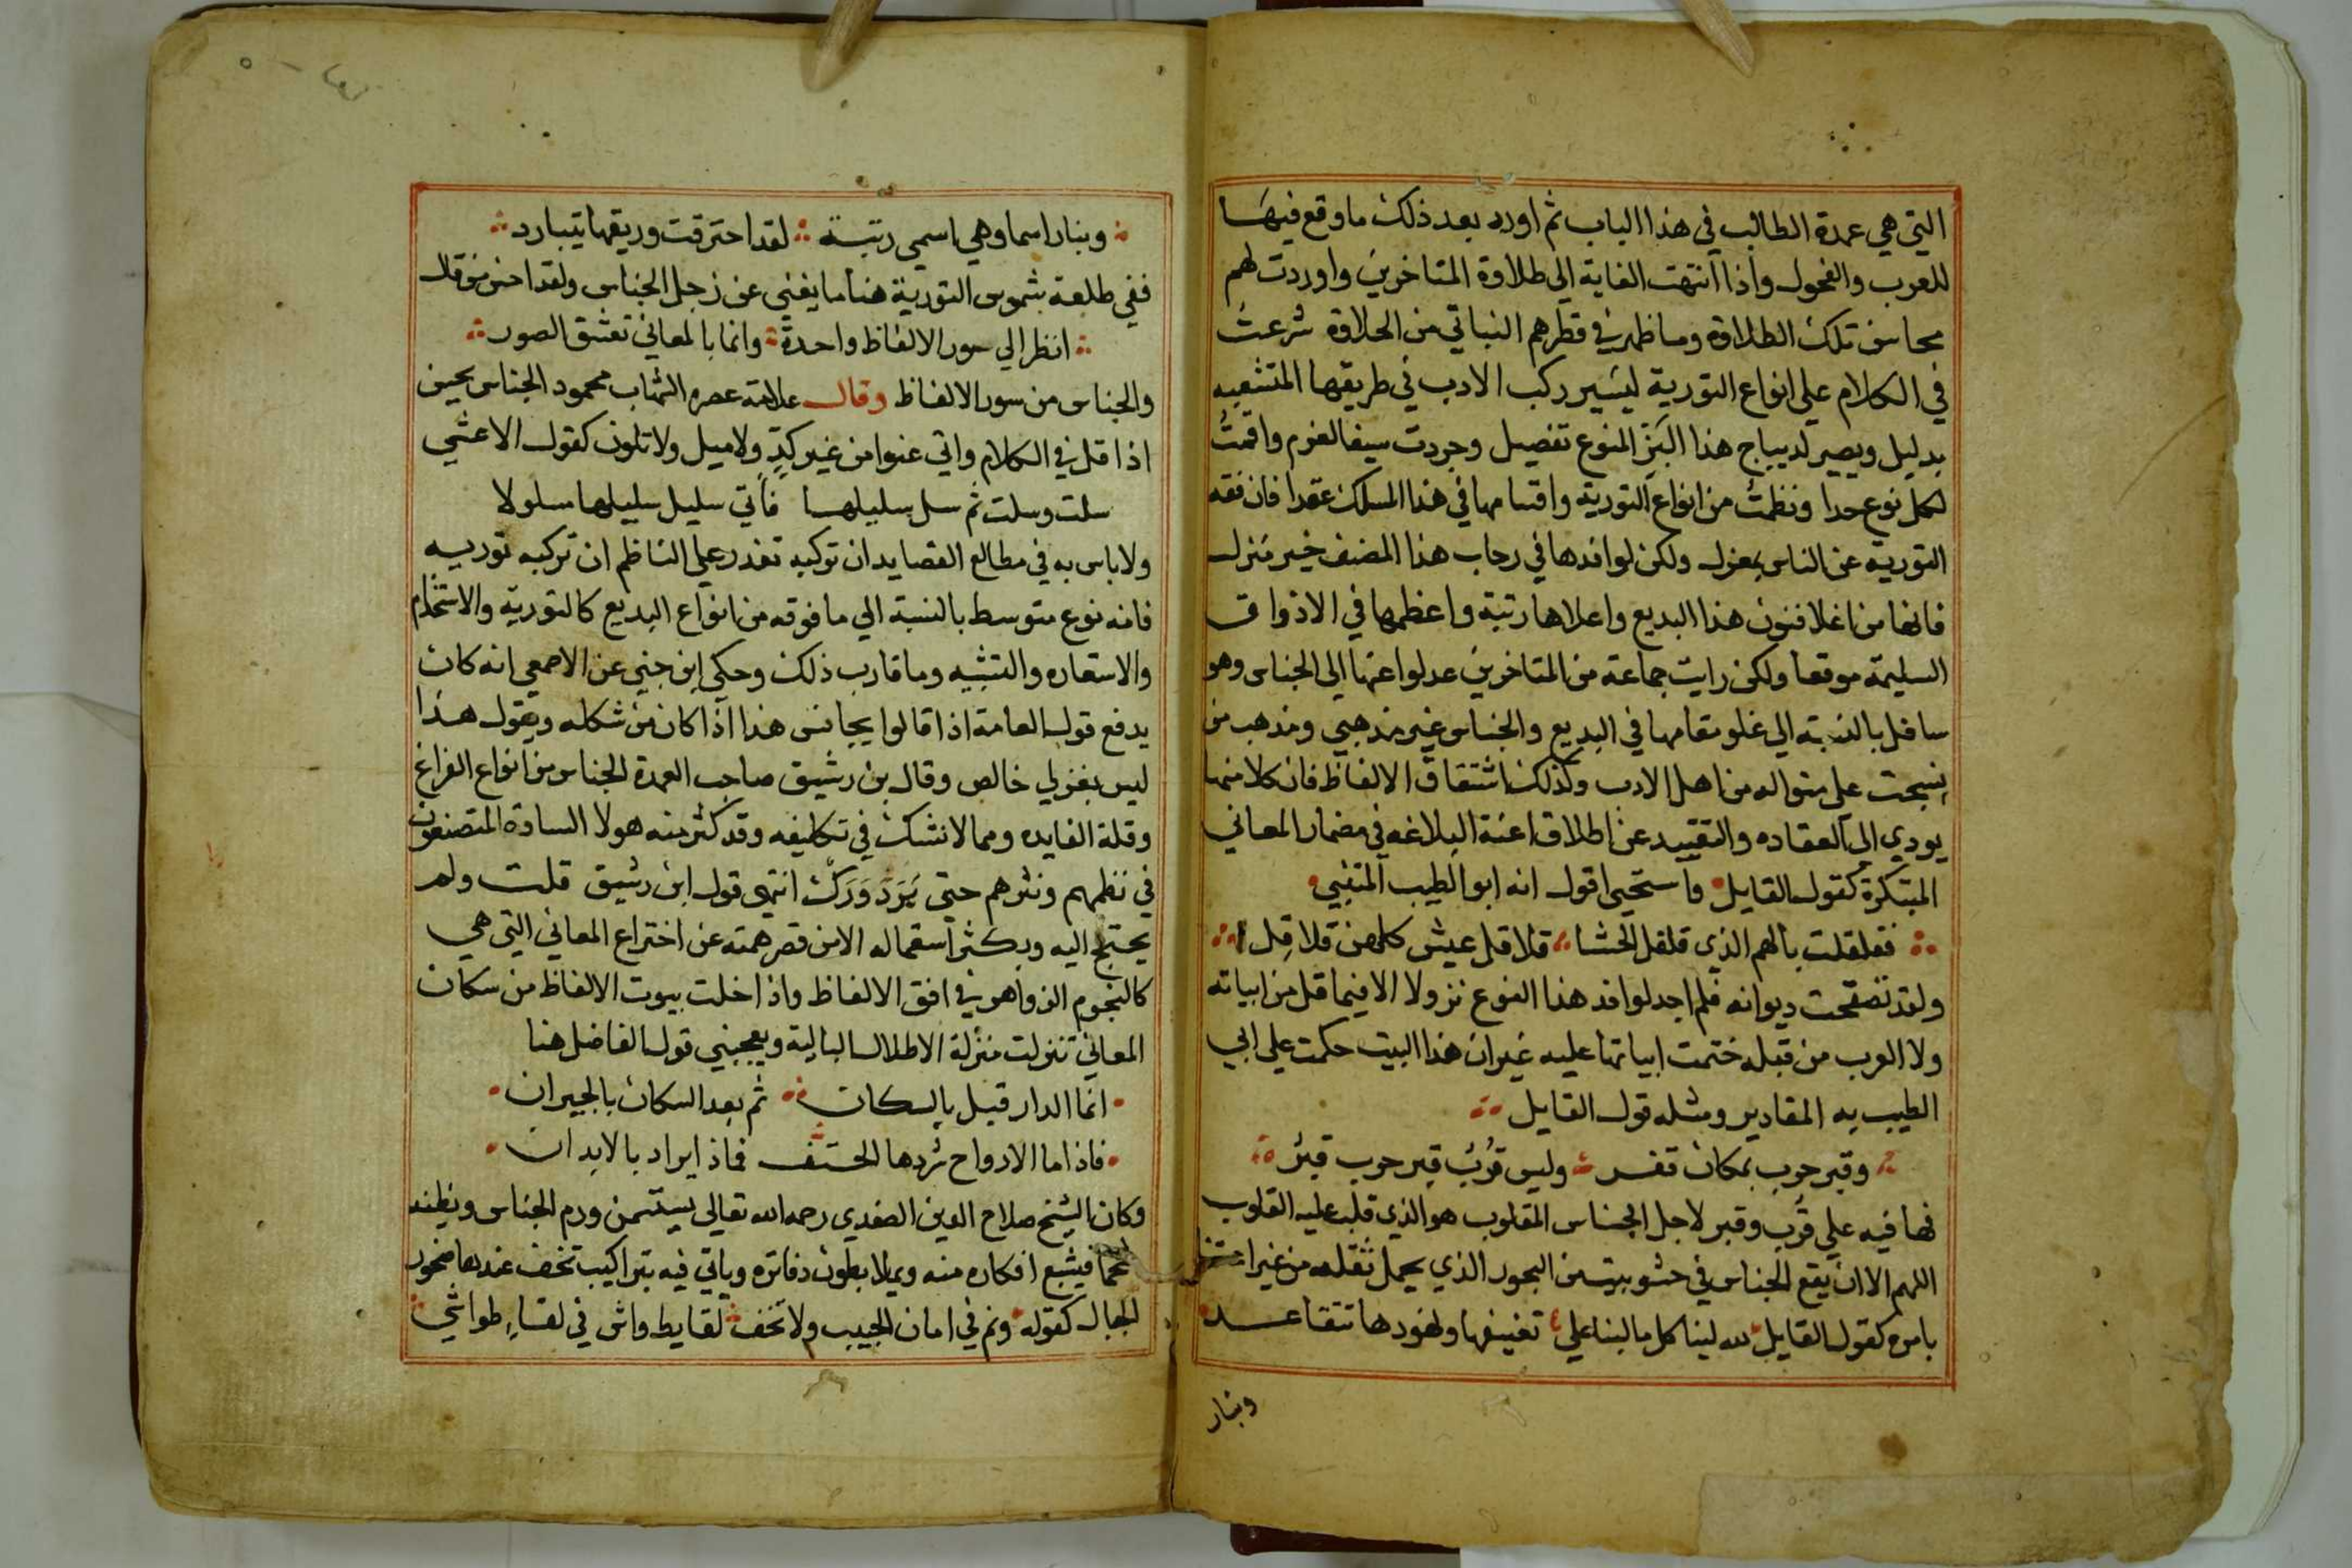 التي هي عمدة الطالب في هذا الباب ثم اورد بعد ذلك ما وقع فيها
للعرب والفحول واذا انتهت الغاية الى طلاوة المتاخرين واوردت لهم
محاسن تلك الطلاوة وما ظهر في قطرهم النباتي من الحلاوة شرعت
في الكلام على انواع التورية ليسير ركب الادب في طريقها المتشعبه
بدليل ويصير لديباج هذا البَز المنوع تفصيل وجردت سيف العزم واقمت
لكل نوع حدا ونظمت من انواع التورية واقسامها في هذا المسلك عقدا فان فقه
التورية عن الناس بمعزل ولكن لوافدها في رحاب هذا المصنف خير منزل
فانها من اغلا فنون هذا البديع واعلاها رتبة واعظمها في الاذواق
السليمة موقعا ولكن رايت جماعة من المتاخرين عدلوا عنها الى الجناس وهو
سافل بالنسبة الى علو مقامها في البديع والجناس غير مذهبي ومذهب من
نسجت على منواله من اهل الادب وكذلك اشتقاق الالفاظ فان كلا منهما
يودي الى العقاده والتقييد عن اطلاق اعنة البلاغه في مضمار المعاني
المبتكرة كقول القايل واستحيي اقول انه ابو الطيب المتنبي
فقلقلت بالهم الذي قلقل الحشا قلاقل عيش كلهن قلاقِل
ولقد تصفحت ديوانه فلم اجد لوافد هذا النوع نزولا الا فيما قل من ابياته
ولا العرب من قبله ختمت ابياتها عليه غير ان هذا البيت حكمت على ابي
الطيب به المقادير ومثله قول القايل
وقبر حرب بمكان قفر وليس قُرْبَ قبر حرب قبرُ
فما فيه على قُرب وقبر لاجل الجناس المقلوب هو الذي قلب عليه القلوب
اللهم الا ان يقع الجناس في حشو بيت من البحور الذي يحمل ثقله من غير
بامره كقول القايل لله لينا كل ما لبنا على تعنيفها ولهودها تتقاعد
وبنار
وبنار اسما وهي اسمى رتبة لقد احترقت وريقها يتبارد
ففي طلعة شموس التورية هنا ما يغني عن زحل الجناس ولقد احسن من قال
انظر الي صور الالفاظ واحدة وانما بالمعاني تعشق الصور
والجناس من سور الالفاظ وقال علامة عصره الشهاب محمود الجناس يحسن
اذا قل في الكلام واتى عنوا من غير كدٍّ ولا ميل ولا تلون كقول الاعشي
سلت وسلت ثم سل سليلها فأتي سليل سليلها مسلولا
ولا باس به في مطالع القصايد ان توكيد تعذر علي الناظم ان تركبه توريه
فانه نوع متوسط بالنسبة الي ما فوقه من انواع البديع كالتورية والاستخدام
والاستعاره والتشبيه وما قارب ذلك وحكى ابن جني عن الاصمعي انه كان
يدفع قول العامة اذا قالوا يجانس هذا اذا كان من شكله ويقول هذا
ليس بعربي خالص وقال بن رشيق صاحب العمدة الجناس من انواع الفراغ
وقلة الفايده ومما لا نشك في تكليفه وقد كثر منه هولا السادة المتصنعون
في نظمهم ونثرهم حتى بَرَدَ وَرَكَّ انتهى قول ابن رشيق قلت ولم
يحتج اليه وبكثر استعماله الا من قصر همته عن اختراع المعاني التي هي
كالنجوم الزواهر في افق الالفاظ واذا خلت بيوت الالفاظ من سكان
المعاني تنزلت منزلة الاطلال البالية ويعجبني قول الفاضل هنا
انما الدار قبل بالسكان ثم بعد السكان بالجيران
فاذا ما الارواح شردها الحتف فماذا يراد بالابدان
وكان الشيخ صلاح الدين الصفدي رحمه الله تعالى يستسمن ورم الجناس ويظنه
شحما فيشبع افكاره منه ويملا بطون دفاتره وياتي فيه بتراكيب تخف عندها صخور
الجبال كقوله ونم في امان الحبيب ولا تخف لقايط واش في لقاءِ طواشي